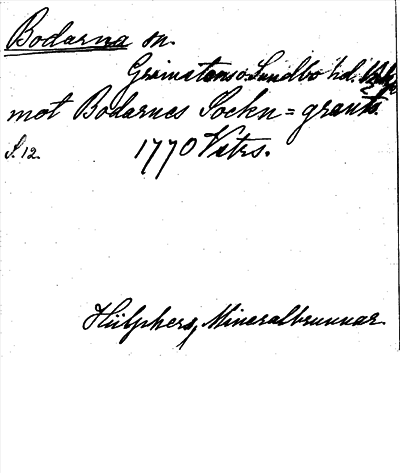 Bodarna sn.
Simtuna o Sundbo hd.
mot Bodarnes Sockn = grants.
S. 12. 1770 Vetrs.
Hülphers, Mineralbrunnar.